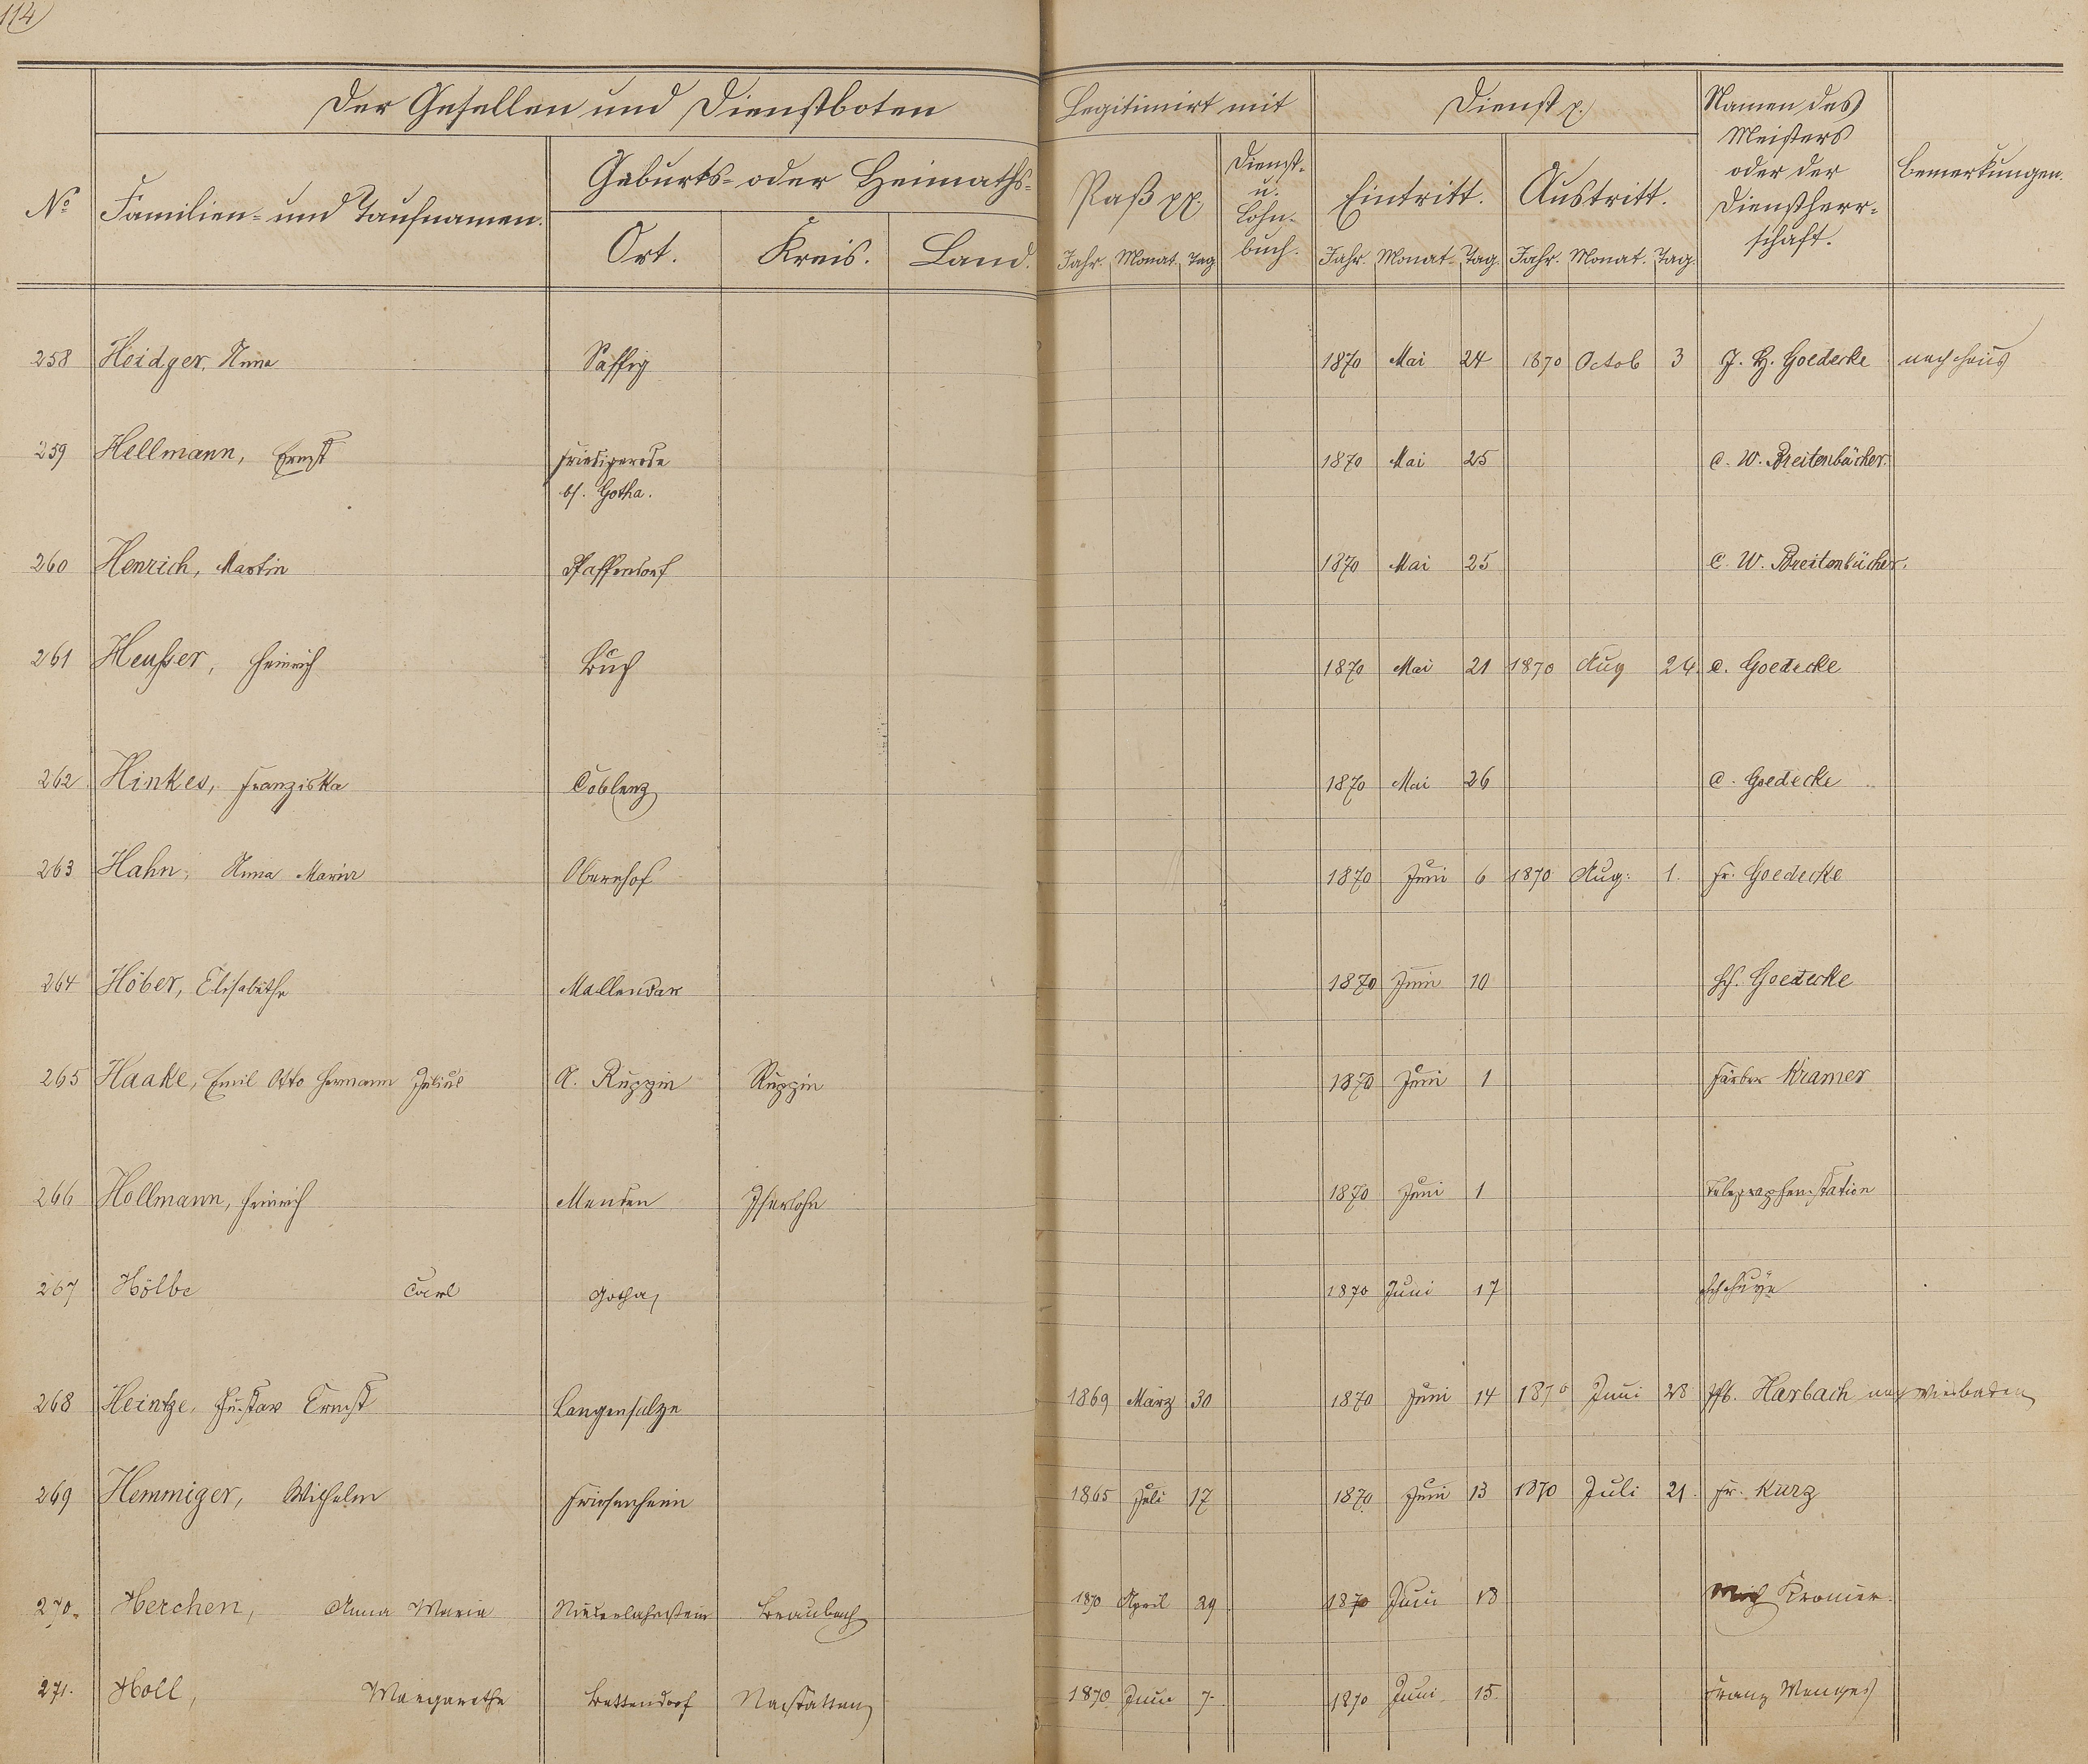 114
Der Gesellen und Dienstboten
Legitimirt mit
Dienst p.
Namen des Meisters oder der Dienstherrschaft.
Bemerkungen.
No
Familien- und Taufnamen.
Geburts- oder Heimaths-
Ort. Kreis. Land.
Paß pp.
Dienst- u. Lohn- buch.
Eintritt. Austritt.
Jahr. Monat. Tag
Jahr. Monat. Tag. Jahr. Monat. Tag.
258 Heidger, Anna Saffig 1870 Mai 24 1870 Octob 3 J. H. Goedecke nach Haus
259 Hellmann, Ernst 1870 Mai 25 C. W. Breitenbücher.
bf. Gotha.
260 Henrich, Martin Pfaffendorf 1870 Mai 25 C. W. Breitenbücher.
261 Heußer, Heinrich Buch 1870 Mai 21 1870 Aug 24. C. Goedecke
262 Hinkes, Franziska Coblenz 1870 Mai 26 C. Goedecke
263 Hahn, Anna Maria Obernhof 1870 Juni 6 1870 Aug: 1. Fr. Goedecke
264 Höber, Elisabetha Mallendar 1870 Juni 10 Goedecke
265 Haake, Emil Otto Hermann Julius A. Ruppin Ruppin 1870 Juni 1 Färber Kramer
266 Hollmann, Heinrich Menden Iserlohn 1870 Juni 1 Telegraphenstation
267 Hölbe Carl Gotha 1870 Juni 17
268 Heintze, Gustav Ernst Langensalza 1869 März 30 1870 Juni 14 1870 Juni 28 Harbach nach Wiesbaden
269 Hemmiger, Wilhelm Friesenheim 1865 Juli 17 1870 Juni 13 1870 Juli 21. Fr. Kurz
270. Herchen, Anna Maria Niederlahnstein Braubach 1870 April 29 1870 Juni 18 Kramer.
271. Holl, Margaretha Bettendorf Nastätten 1870 Juni 7. 1870 Juni 15. Franz Menges